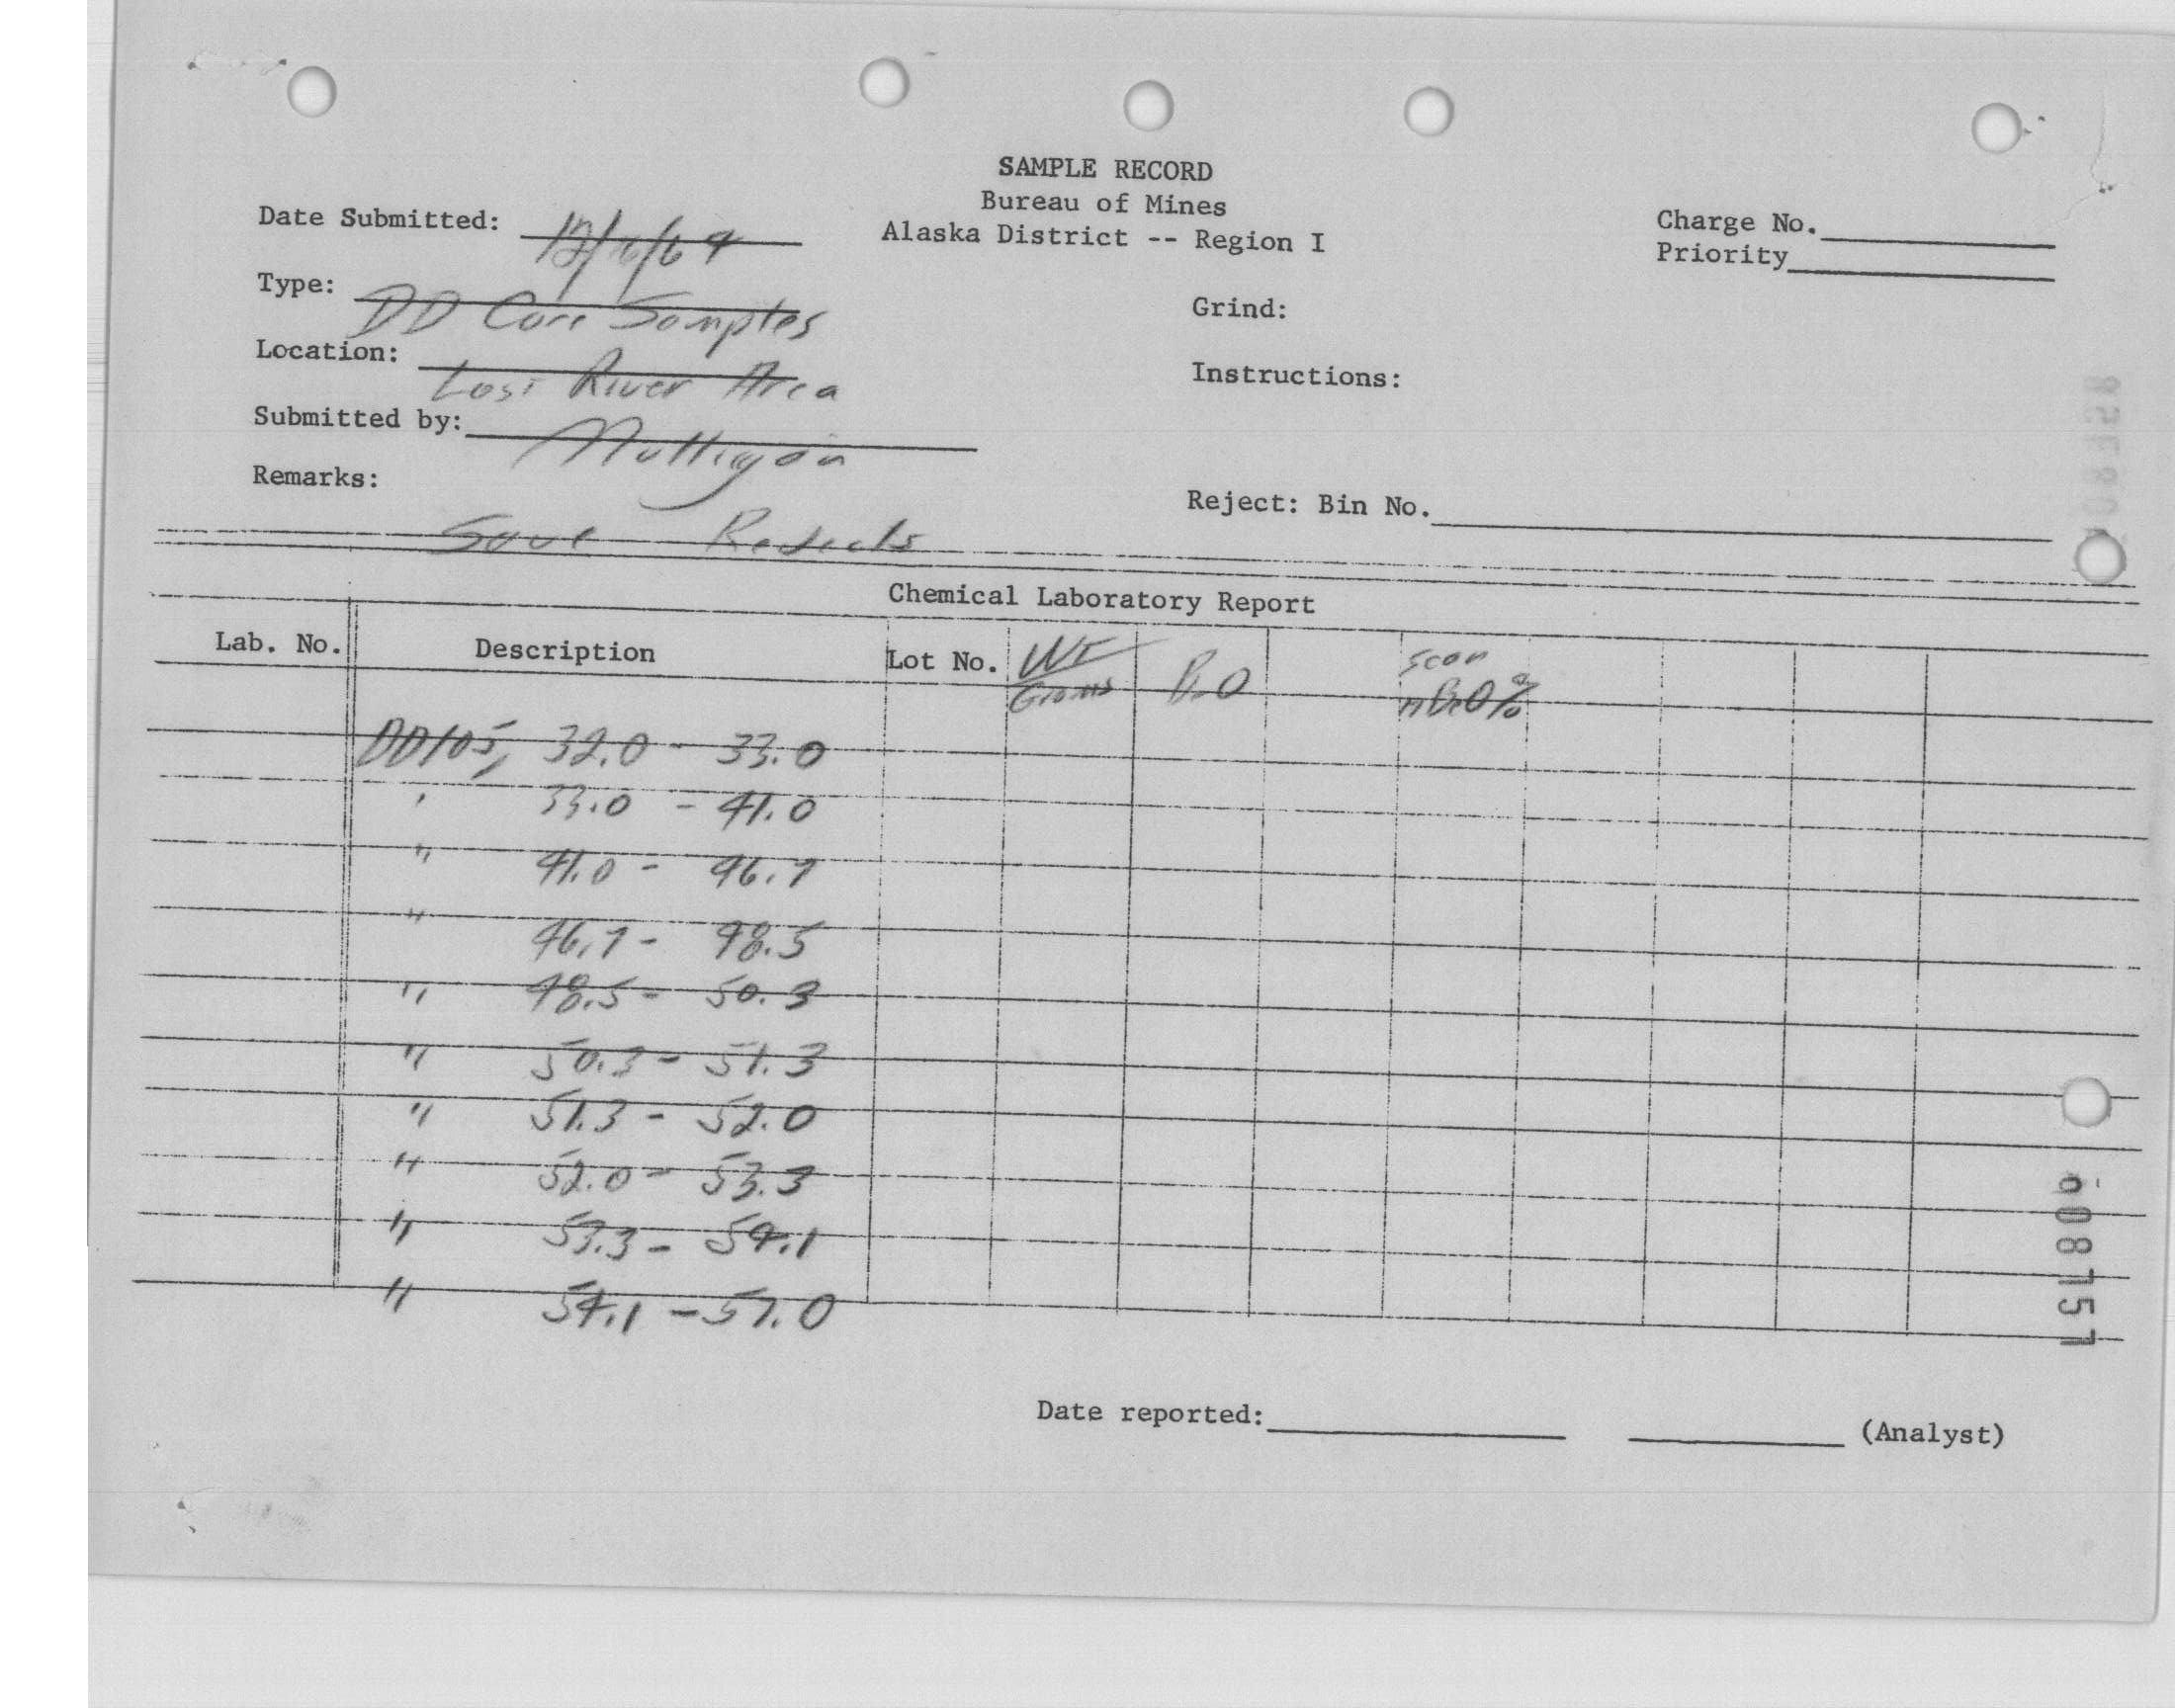 SAMPLE RECORD
Bureau of Mines
Alaska District -- Region I
Date Submitted: 12/ /64
Charge No.
Priority
Type: DD Core Samples
Grind:
Location: Lost River Area
Instructions:
Submitted by: Mulligan
Remarks:
Save Rejects
Reject: Bin No.
Chemical Laboratory Report
Lab. No. Description Lot No. WT Grams BeO Scan BeO%
DD105, 32.0 - 33.0
" 33.0 - 41.0
" 41.0 - 46.7
" 46.7 - 48.5
" 48.5 - 50.3
" 50.3 - 51.3
" 51.3 - 52.0
" 52.0 - 53.3
" 53.3 - 54.1
" 54.1 - 57.0
Date reported: (Analyst)